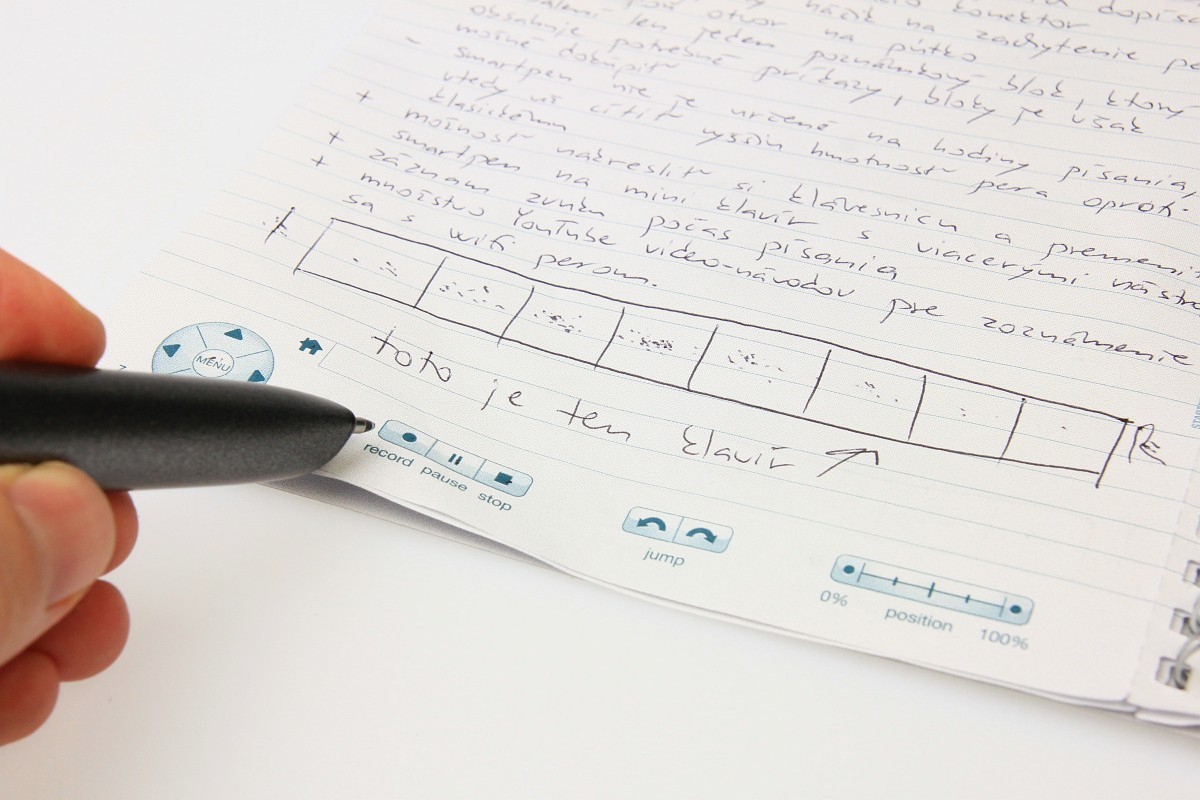 dopísa
konektor
háčik na zachytenie pe
otvor na pútko
balení len jeden poznámkový blok, ktorý
obsahuje potrebné príkazy, bloky je však
možné dokúpiť
- smartpen nie je určené na hodiny písania,
vtedy už cítiť vyššiu hmotnosť pera oproti
klasickému
+ možnosť nakresliť si klávesnicu a premeni
smartpen na mini klavír s viacerými nástro
+ záznam zvuku počas písania
+ množstvo YouTube video-návodov pre zoznámenie
sa s wifi perom.
toto je ten klavír
MENU
record pause stop
jump
0% position 100%
START